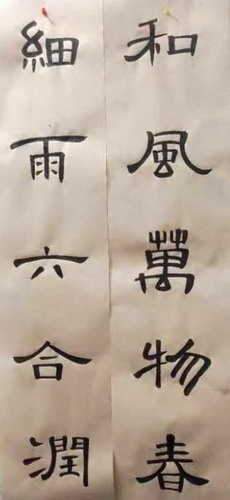 和風萬物春
細雨六合潤